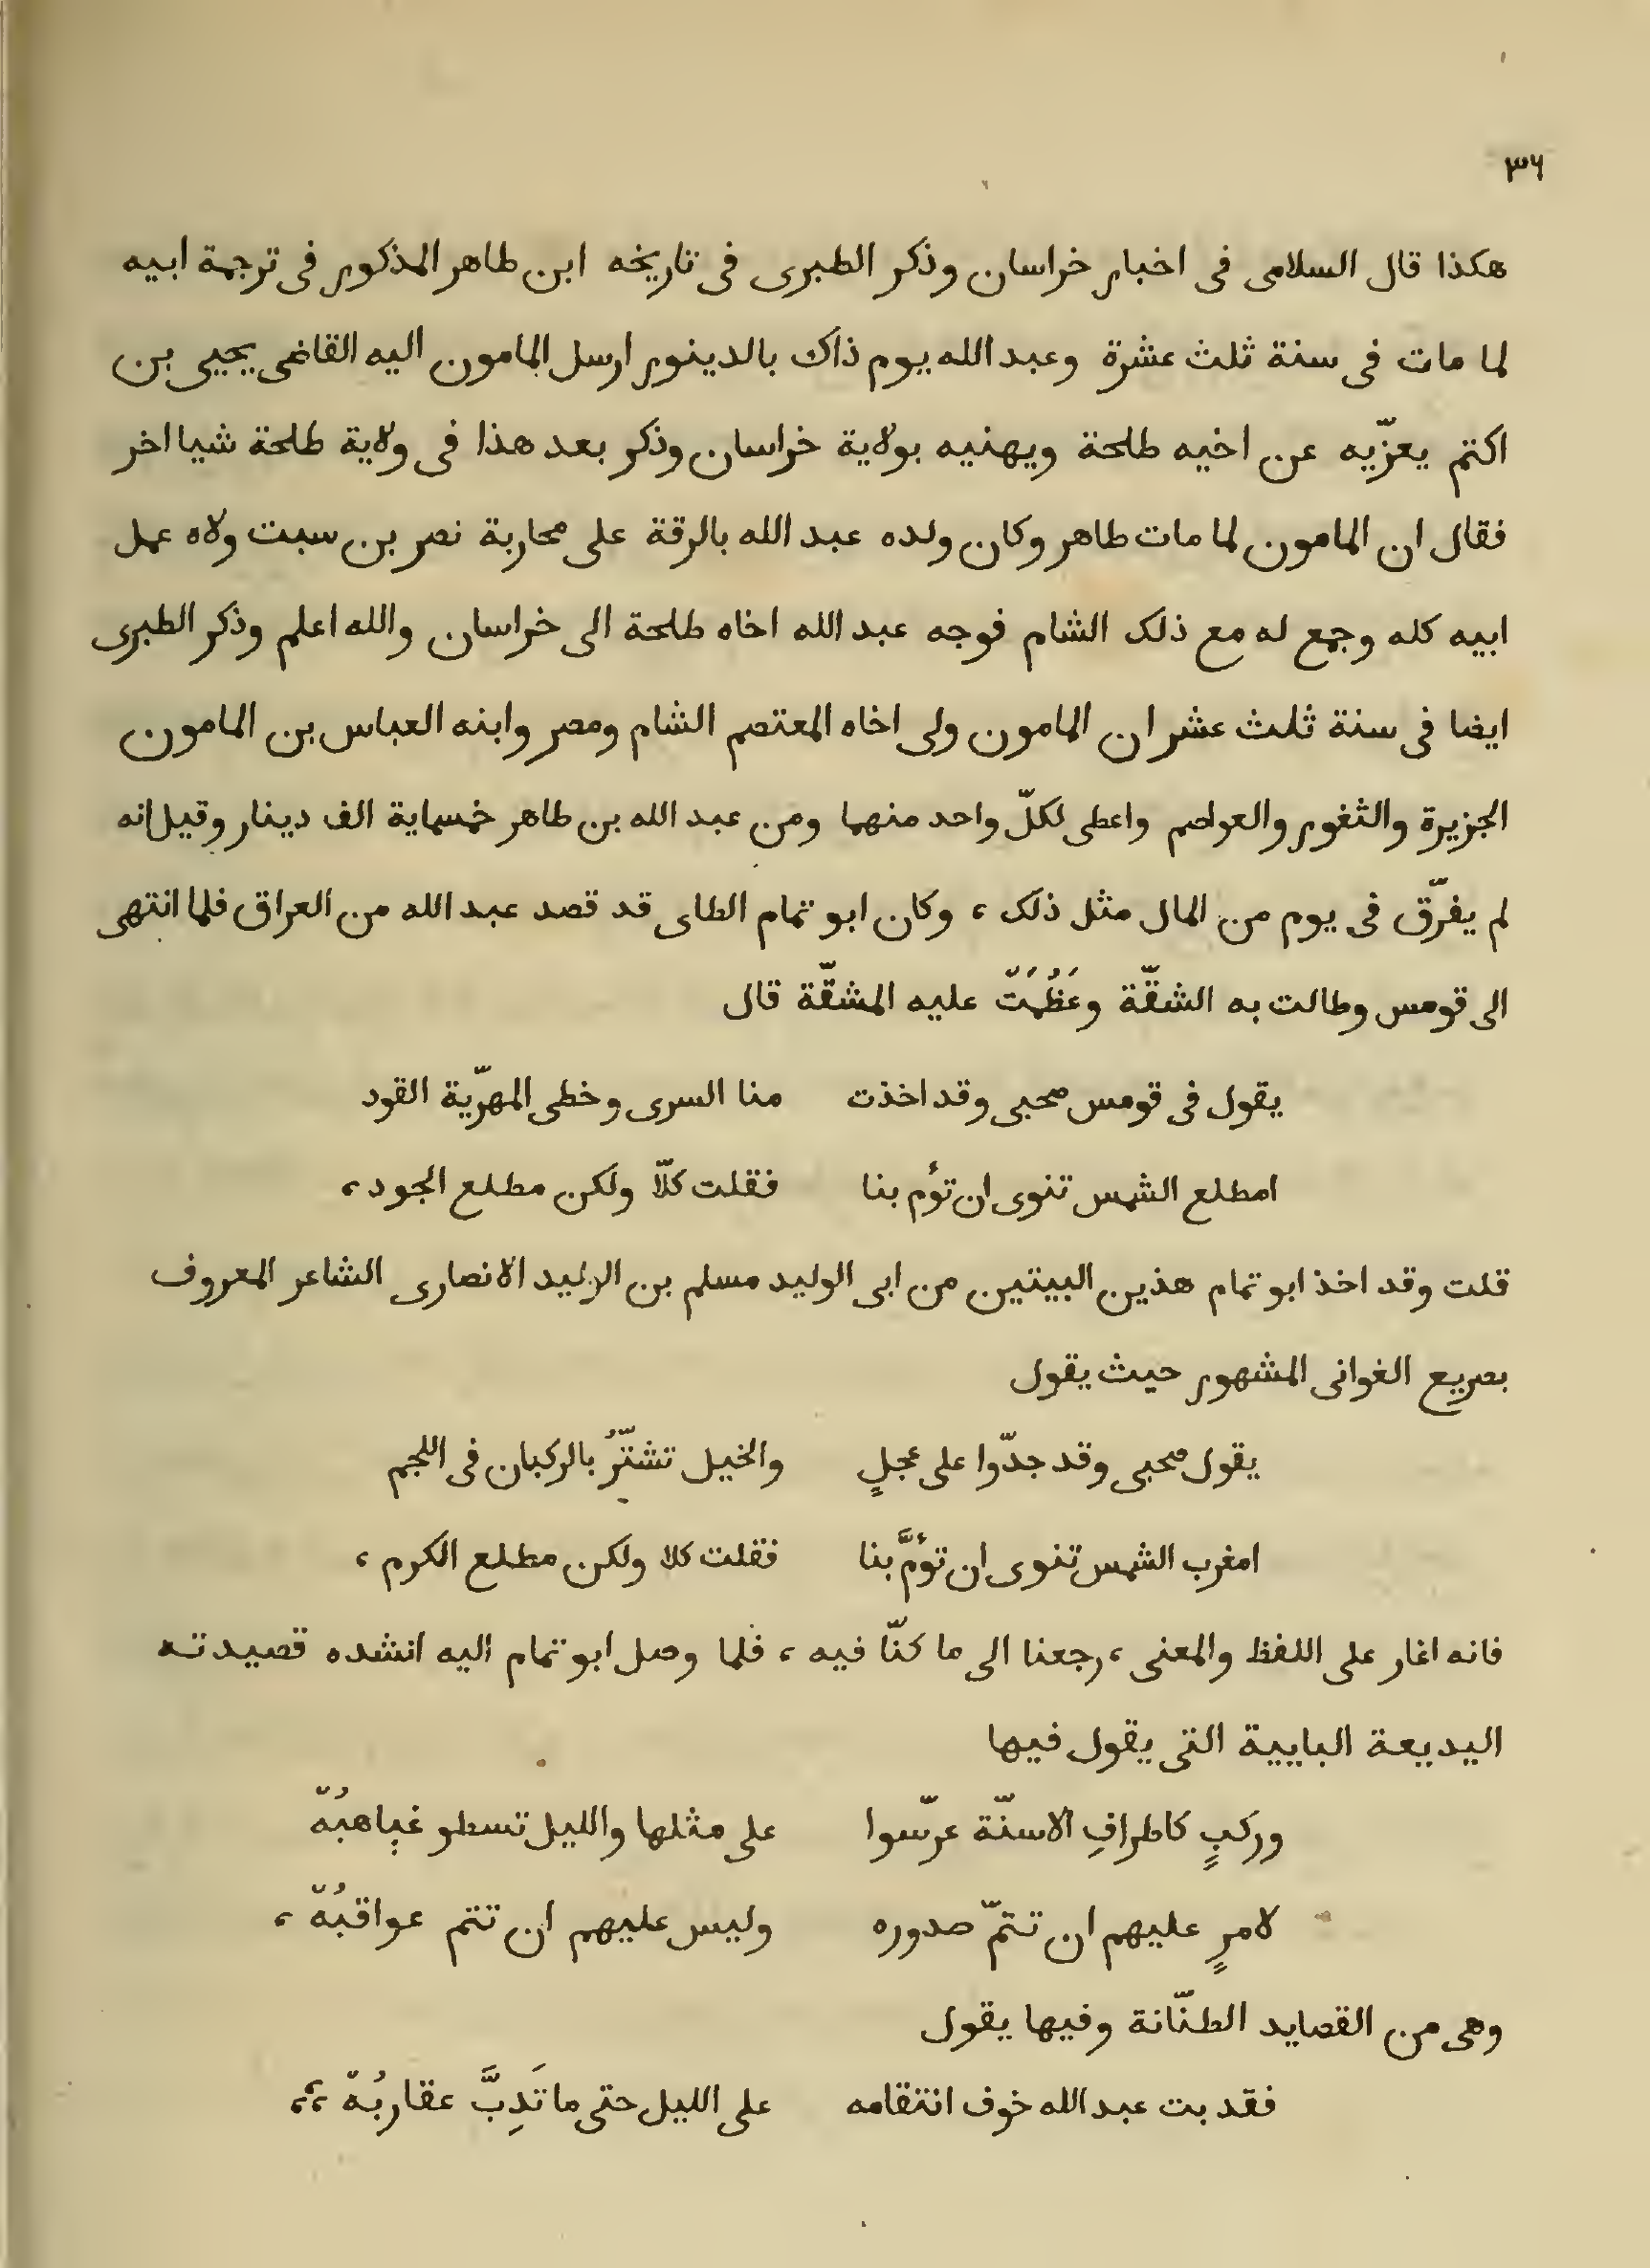 ٣٦
هكذا قال السلامى فى اخبار خراسان وذكر الطبرى فى تاريخه ابن طاهر المذكور فى ترجمة ابيه
لما مات فى سنة ثلث عشرة وعبد الله يوم ذاك بالدينور ارسل المامون اليه القاضى يحيى بن
اكتم يعزّيه عن اخيه طلحة ويهنيه بولاية خراسان وذكر بعد هذا فى ولاية طلحة شيا اخر
فقال ان المامون لما مات طاهر وكان ولده عبد الله بالرقة على محاربة نصر بن سبت ولاه عمل
ابيه كله وجمع له مع ذلك الشام فوجه عبد الله اخاه طلحة الى خراسان والله اعلم وذكر الطبرى
ايضا فى سنة ثلث عشر ان المامون ولى اخاه المعتصم الشام ومصر وابنه العباس بن المامون
الجزيرة والثغور والعواصم واعطى لكلّ واحد منهما ومن عبد الله بن طاهر خمسماية الف دينار وقيل انه
لم يفرّق فى يوم من المال مثل ذلك ، وكان ابو تمام الطاى قد قصد عبد الله من العراق فلما انتهى
الى قومس وطالت به الشقّة وعَظُمَتْ عليه المشقّة قال
يقول فى قومس صحبى وقد اخذت منا السرى وخطى المهرّية القود
امطلع الشمس تنوى ان تؤم بنا فقلت كلّا ولكن مطلع الجود ،
قلت وقد اخذ ابو تمام هذين البيتين من ابى الوليد مسلم بن الوليد الانصارى الشاعر المعروف
بصريع الغوانى المشهور حيث يقول
يقول صحبى وقد جدّوا على عجلٍ والخيل تشتّرُ بالركبان فى اللجم
امغرب الشمس تنوى ان تؤمَّ بنا فقلت كلا ولكن مطلع الكرم ،
فانه اغار على اللفظ والمعنى ، رجعنا الى ما كنّا فيه ، فلما وصل ابو تمام اليه انشده قصيدته
البديعة البايية التى يقول فيها
وركبٍ كاطرافِ الاسنّة عرّسوا على مثلها والليل تسطو غياهبُهْ
لامرٍ عليهم ان تتمّ صدوره وليس عليهم ان تتم عواقبُهْ ،
وهى من القصايد الطنّانة وفيها يقول
فقد بت عبد الله خوف انتقامه على الليل حتى ما تَدِبَّ عقاربُهْ ،،